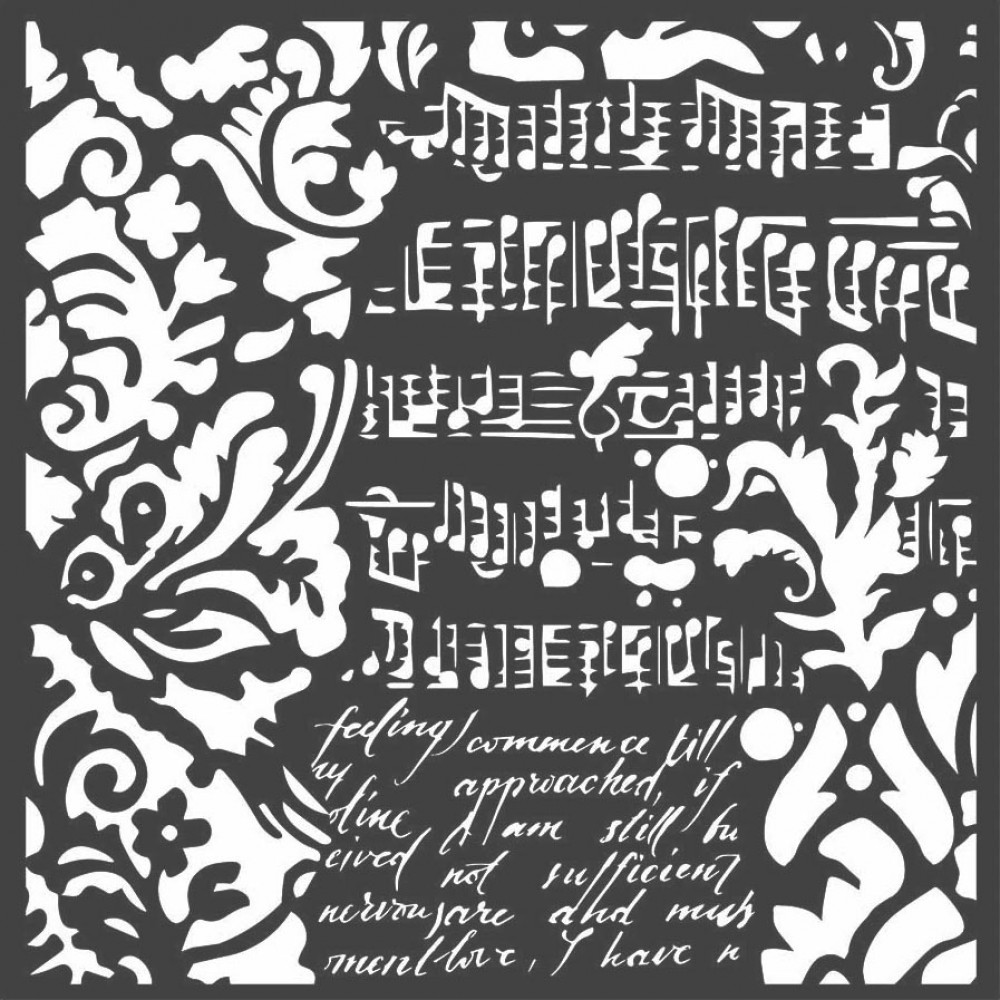 feeling commence till
approached, if
I am still bu
eived not sufficient
nervous are and much
ment love, I have n